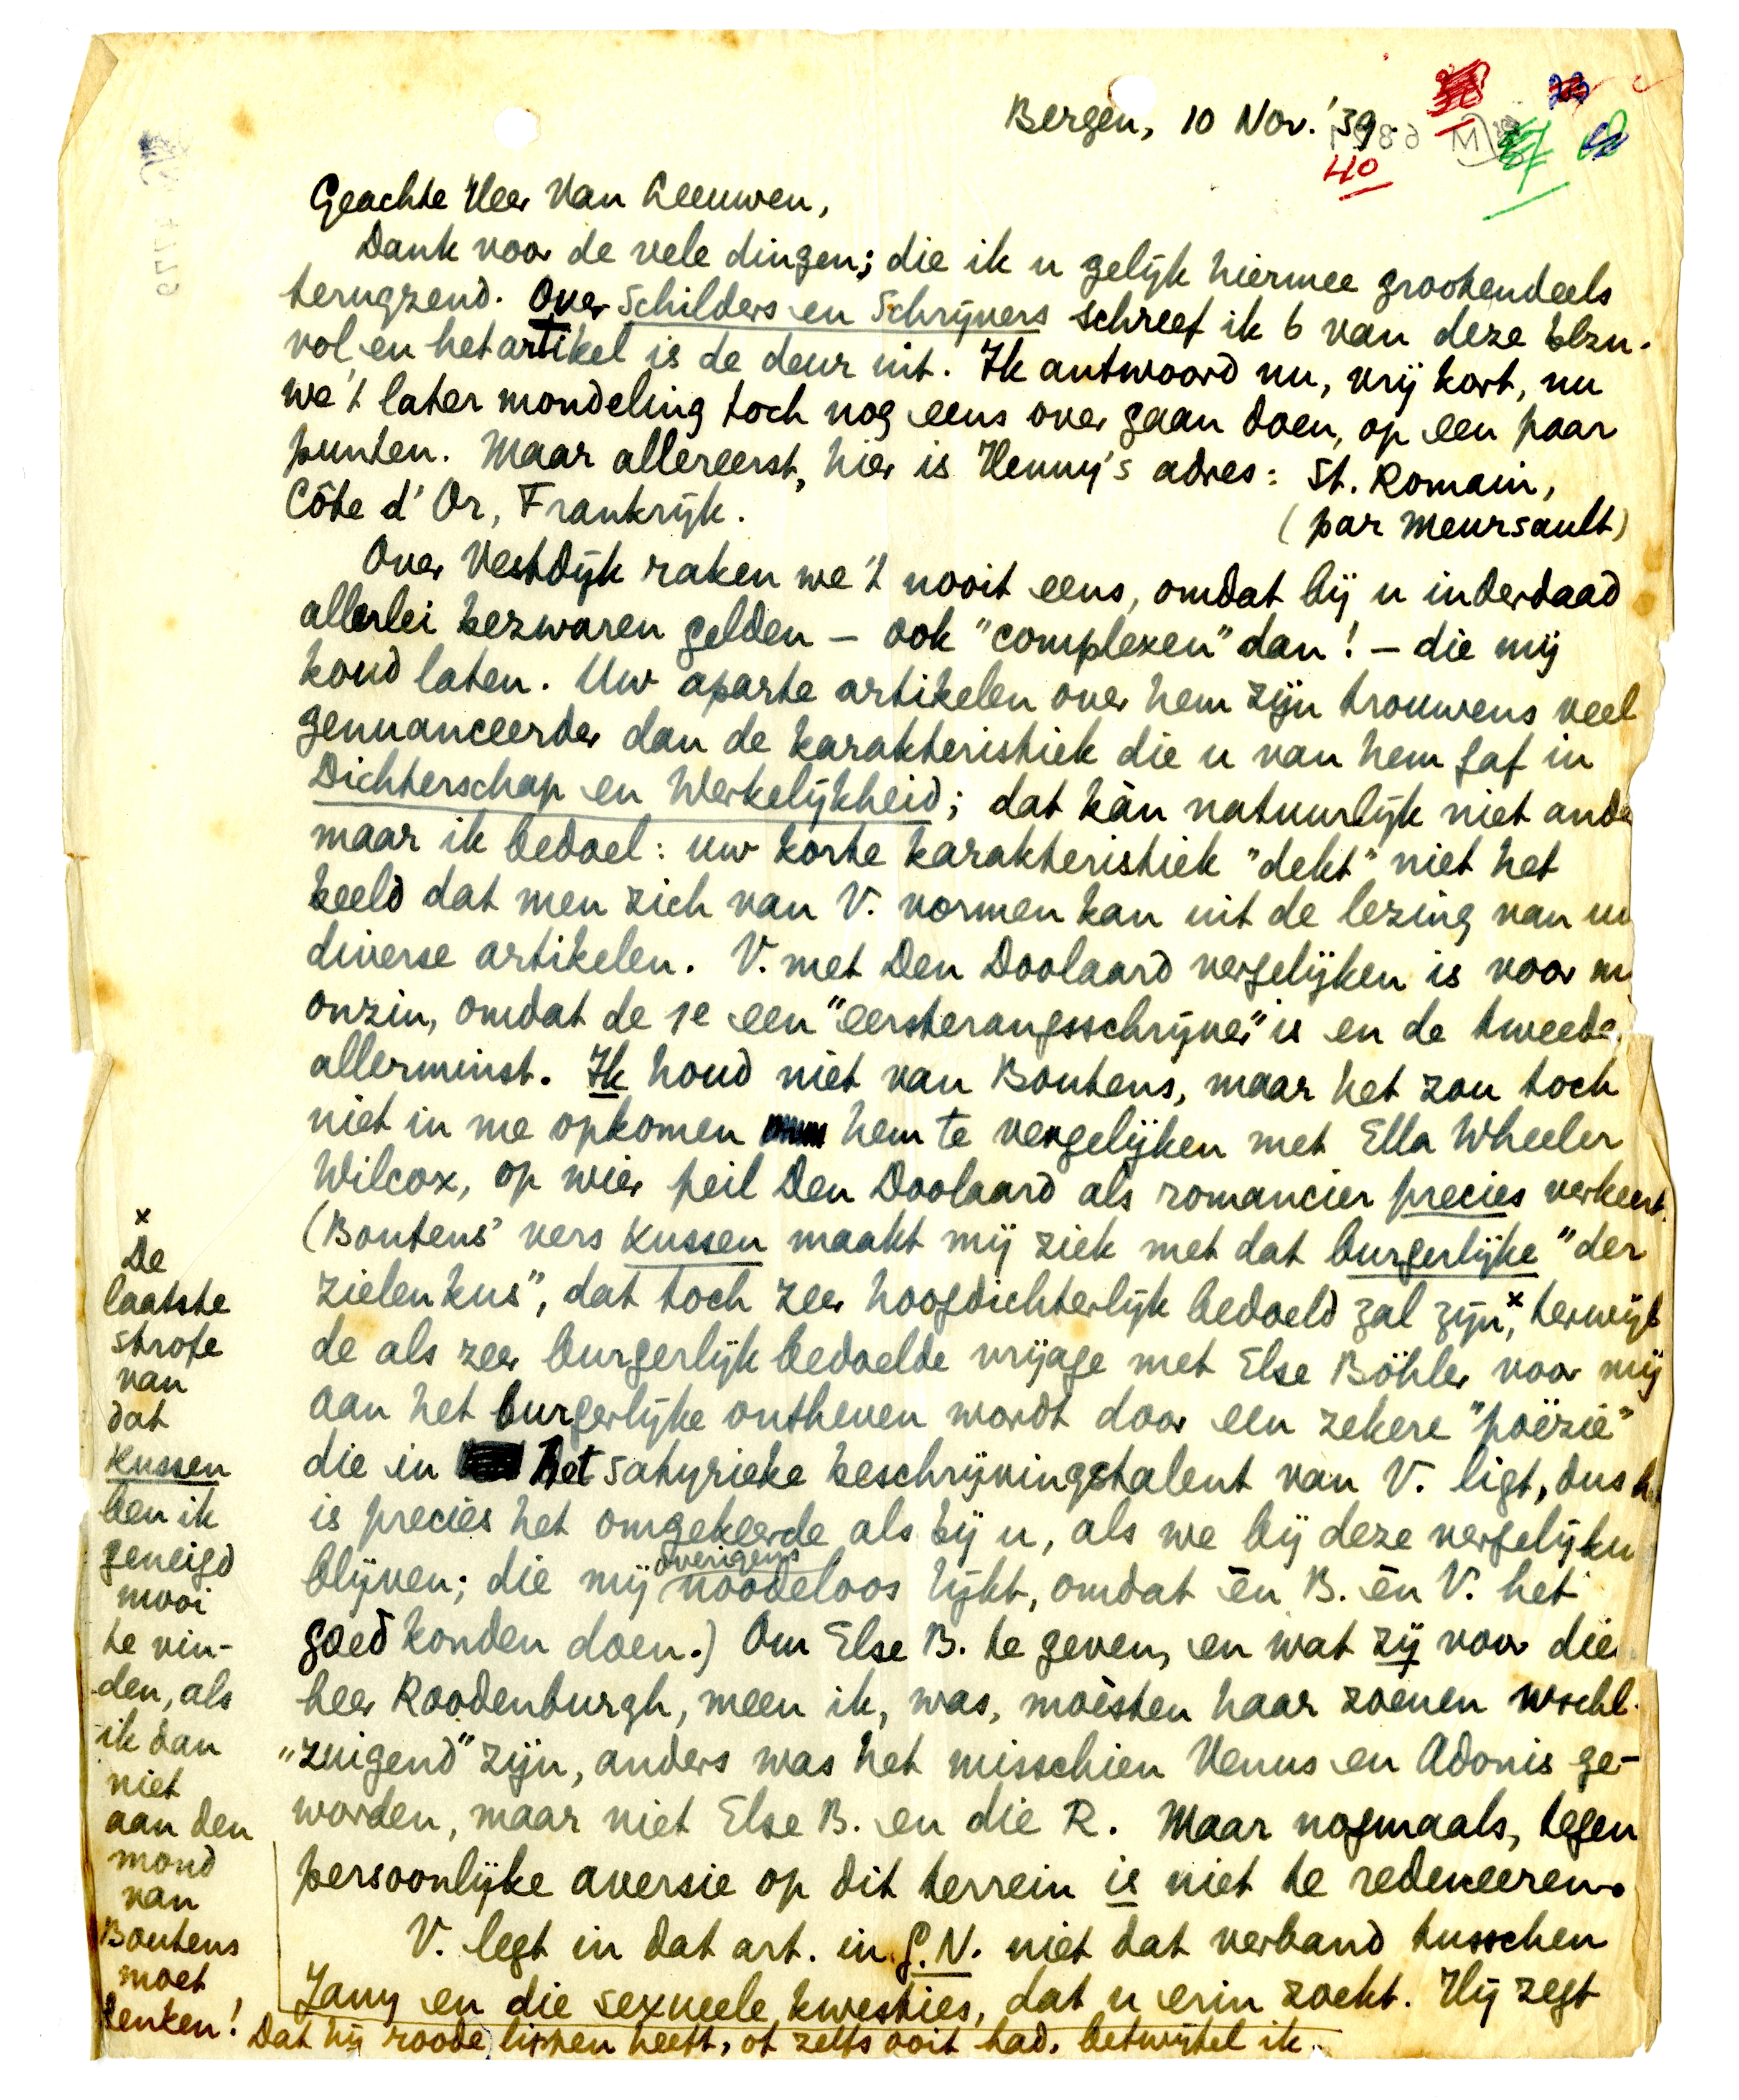 Bergen, 10 Nov. '39.
40
Geachte Heer Van Leeuwen,
Dank voor de vele dingen; die ik u gelijk hiermee grootendeels
terugzend. Over Schilders en Schrijvers schreef ik 6 van deze blzn.
vol, en het artikel is de deur uit. Ik antwoord nu, vrij kort, nu
we 't later mondeling toch nog eens over gaan doen, op een paar
punten. Maar allereerst, hier is Henny's adres: St. Romain,
Côte d'Or, Frankrijk. (par Meursault)
Over Vestdijk raken we 't nooit eens, omdat bij u inderdaad
allerlei bezwaren gelden – ook "complexen" dan! – die mij
koud laten. Uw aparte artikelen over hem zijn trouwens veel
genuanceerder dan de karakteristiek die u van hem gaf in
Dichterschap en Werkelijkheid; dat kàn natuurlijk niet ande
maar ik bedoel: uw korte karakteristiek "dekt" niet het
beeld dat men zich van V. vormen kan uit de lezing van uw
diverse artikelen. V. met Den Doolaard vergelijken is voor mij
onzin, omdat de 1e een "eersterangsschrijver" is en de tweede
allerminst. Ik houd niet van Boutens, maar het zou toch
niet in me opkomen hem te vergelijken met Ella Wheeler
Wilcox, op wier peil Den Doolaard als romancier precies verkeert.
(Boutens' vers Kussen maakt mij ziek met dat burgerlijke "der
zielen kus", dat toch zeer hoogdichterlijk bedoeld zal zijn,x terwijl
de als zeer burgerlijk bedoelde vrijage met Else Böhler voor mij
aan het burgerlijke ontheven wordt door een zekere "poëzie"
die in het satyrieke beschrijvingstalent van V. ligt, dus
is precies het omgekeerde als bij u, als we bij deze vergelijken
blijven; die mij overigens noodeloos lijkt, omdat èn B. èn V. het
goed konden doen.) Om Else B. te geven, en wat zij voor die
heer Roodenburgh, meen ik, was, moèsten haar zoenen wschl.
"zuigend" zijn, anders was het misschien Venus en Adonis ge-
worden, maar niet Else B. en die R. Maar nogmaals, tegen
persoonlijke aversie op dit terrein is niet te redeneeren.
V. legt in dat art. in G.N. niet dat verband tusschen
Jany en die sexueele kwesties, dat u erin zoekt. Hij zegt
x
De
laatste
strofe
van
dat
Kussen
ben ik
geneigd
mooi
te vin-
den, als
ik dan
niet
aan den
mond
van
Boutens
moet
denken! Dat hij roode lippen heeft, of zelfs ooit had, betwijfel ik.